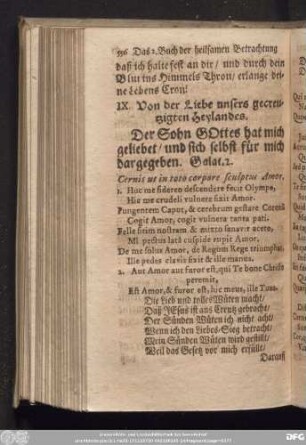 596 Das 2. Buch der heilsamen Betrachtung
daß ich halte fest an dir/ und durch dein
Blut ins Himmels Thron/ erlange dei-
ne Lebens Cron!
IX. Von der Liebe unsers gecreu-
tzigten Heylandes.
Der Sohn GOttes hat mich
geliebet/ und sich selbst für mich
dargegeben. Galat. 2.
Cernis ut in toto corpore sculptus Amor.
1. Hoc me sidereo descendere fecit Olympo,
Hic me crudeli vulnere fixit Amor.
Pungentem Caput, & cerebrum gestare Coronã
Cogit Amor, cogit vulnera tanta pati.
Felle sitim nostram & mixto sanavit aceto,
Mi pectus latô cuspide rupit Amor.
De me solus Amor, de Regum Rege triumphat,
Ille pedes clavis fixit & ille manus.
2. Aut Amor aut furor est, qui Te bone Christe
peremit,
Est Amor, & furor est, hic meus, ille Tuus.
Die Lieb und tolles Wüten macht/
Daß JEsus ist ans Creutz gebracht/
Der Sünden Wüten ich nicht acht/
Wenn ich den Liebes-Sieg betracht/
Mein Sünden Wüten wird gestillt/
Weil das Gesetz vor mich erfüllt/
Darauß